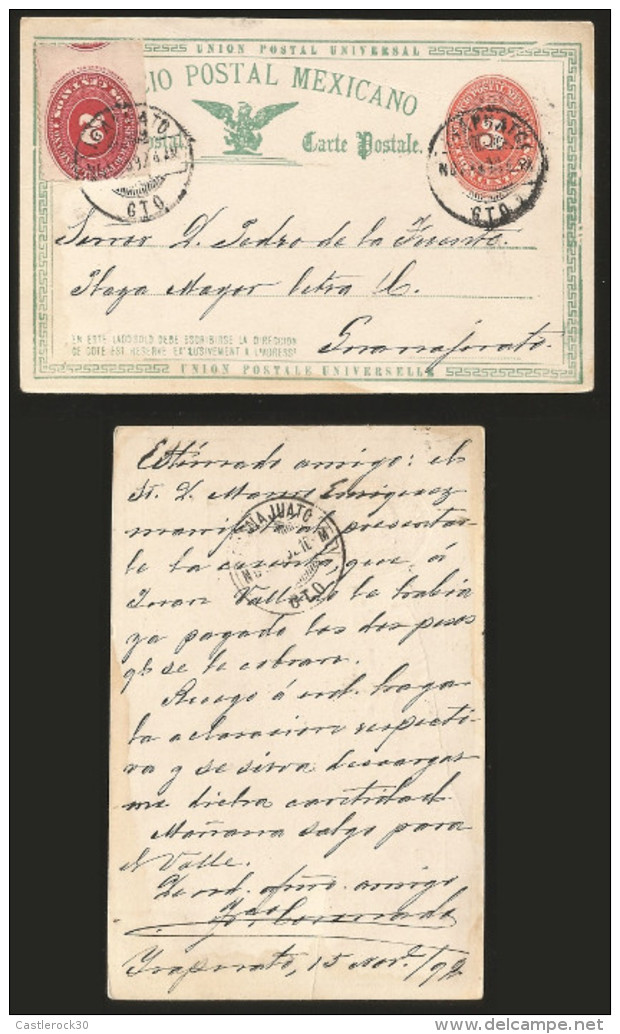 UNION POSTAL UNIVERSAL
CIO POSTAL MEXICANO
Postal. Carte Postale.
GTO
GTO
Señor D. Pedro de la Fuente.
Plaza Mayor letra C.
Guanajuato.
EN ESTE LADO SOLO DEBE ESCRIBIRSE LA DIRECCION
CE COTE EST RESERVE EXCLUSIVEMENT A L'ADRESSE
UNION POSTALE UNIVERSELLE
Estimado amigo: el
Sr. D. Marcos Enriquez
NAJUATO
GTO
le la cuenta, que á
Juan le habia
ya pagado los dos pesos
qe se le cobran.
Ruego á ud. haga
la aclaracion respecti
va y se sirva descargar
me dicha cantidad.
Mañana salgo para
el Valle.
De ud. afmo. amigo
Irapuato, 15 Nove./92
Castlerock30
delcampe.net